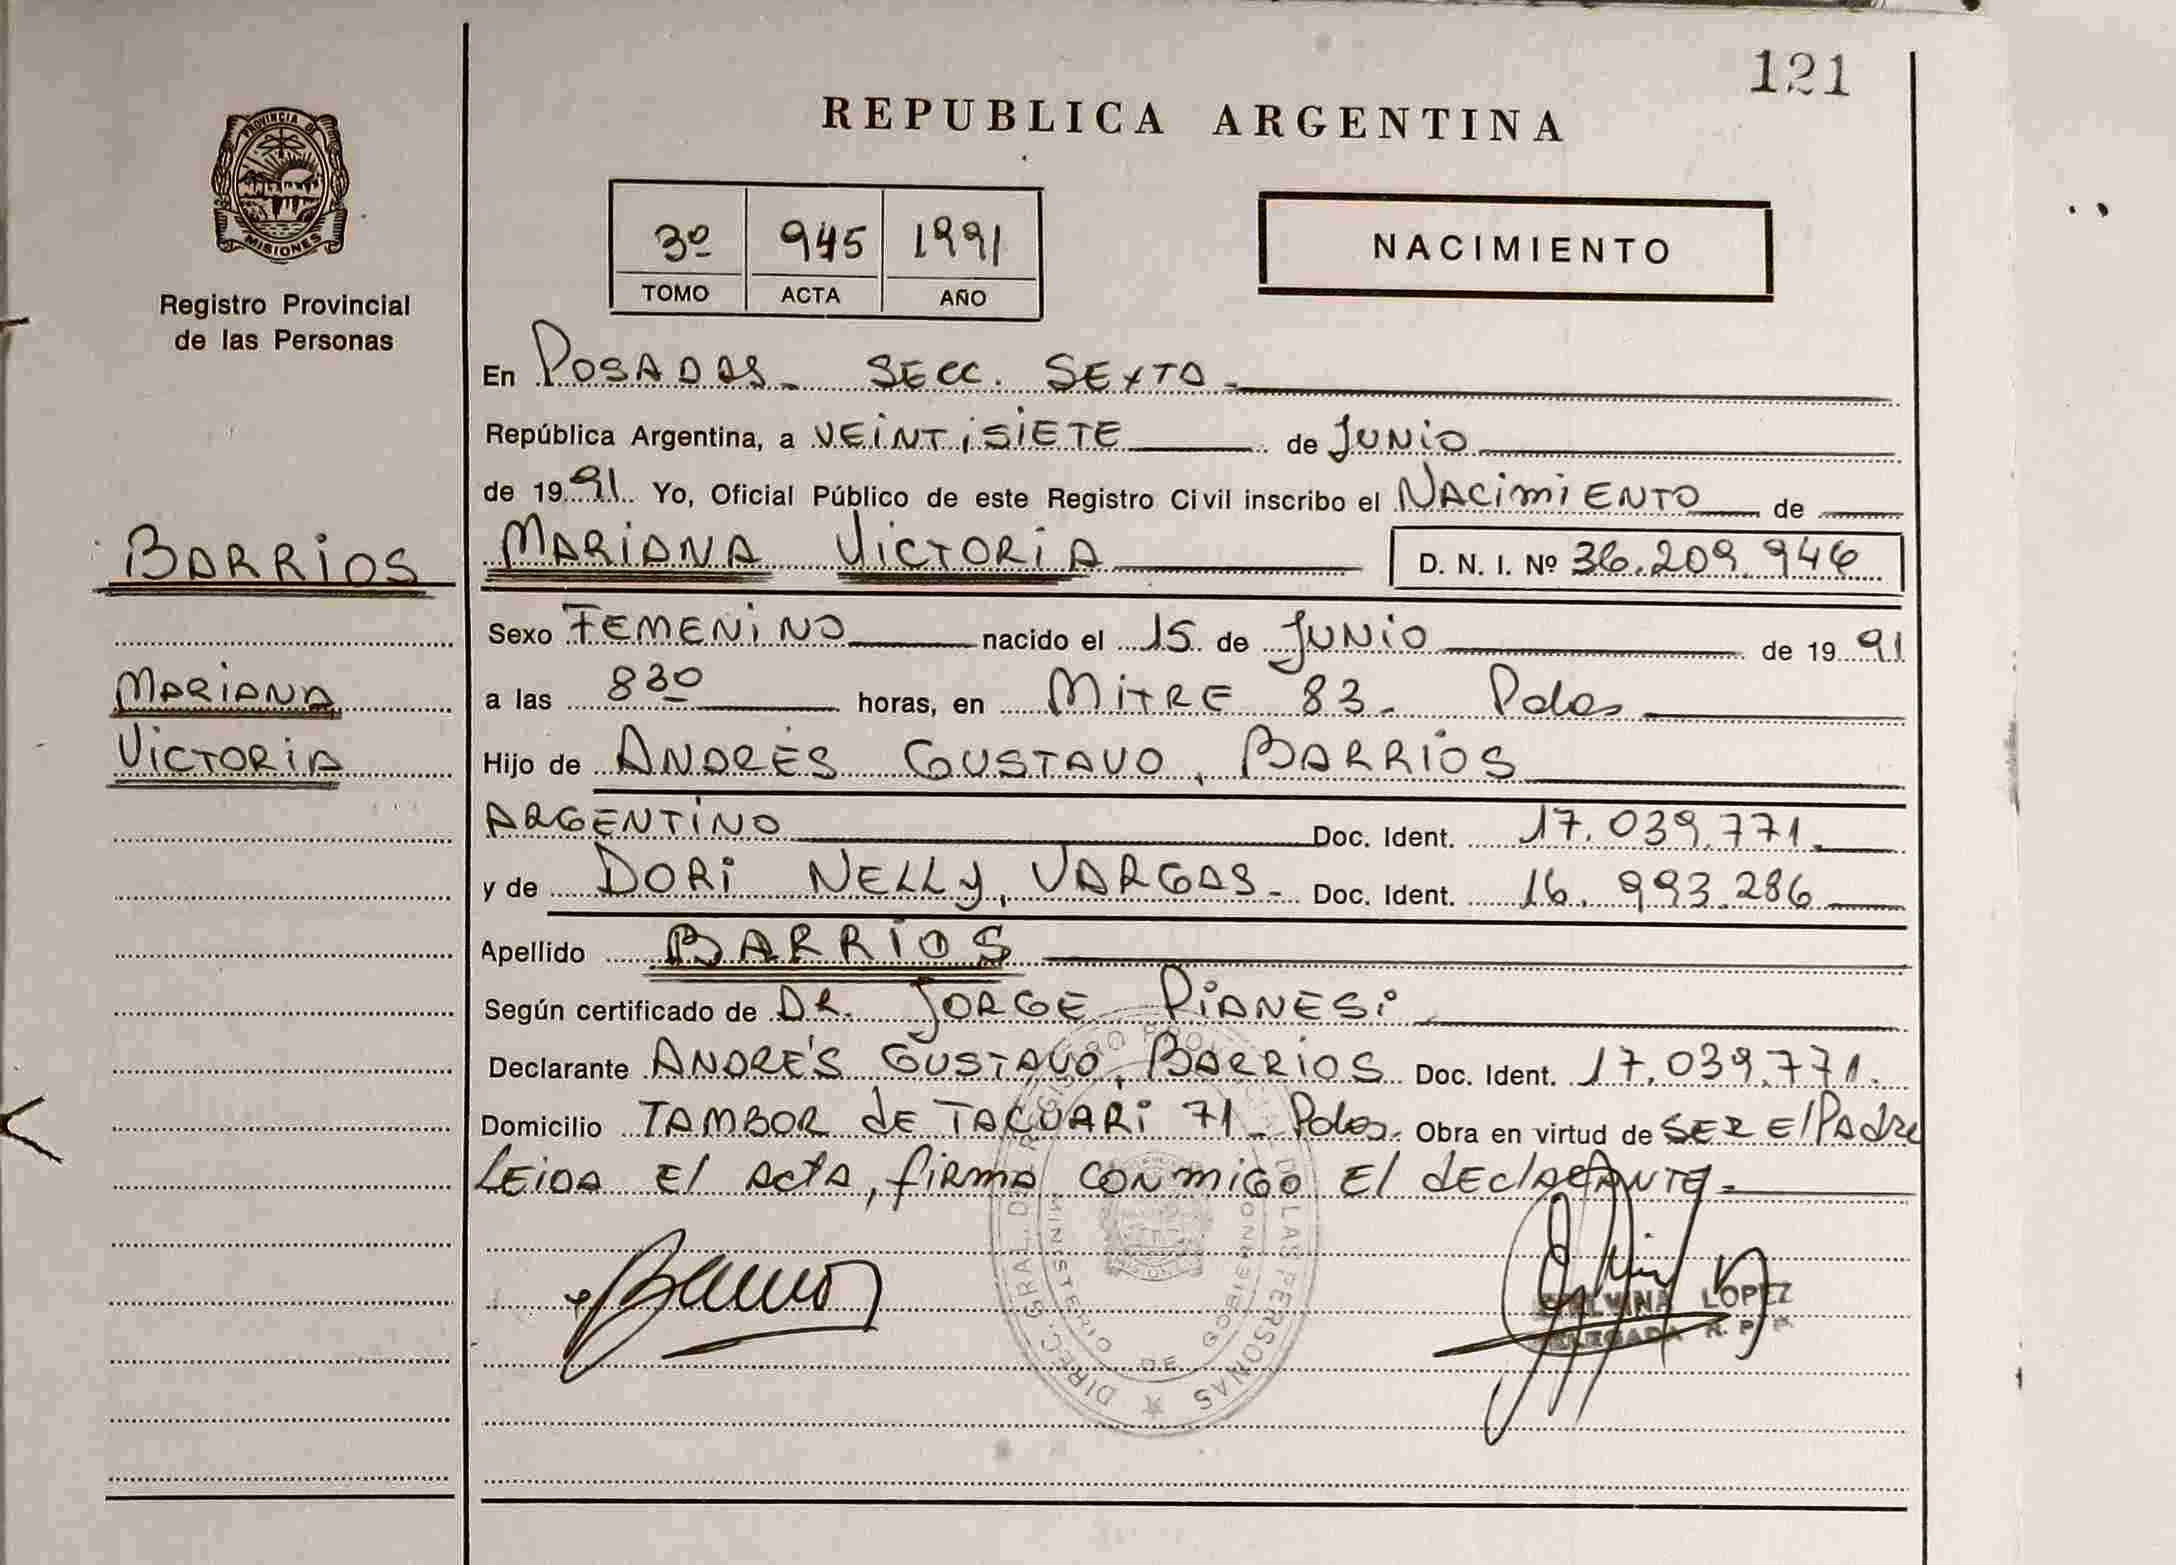 121
REPUBLICA ARGENTINA
PROVINCIA DE
MISIONES
Registro Provincial
de las Personas
3º 945 1991
TOMO ACTA AÑO
NACIMIENTO
En POSADAS - SECC. SEXTA -
República Argentina, a VEINTISIETE de JUNIO
de 1991. Yo, Oficial Público de este Registro Civil inscribo el NACIMIENTO de
BARRIOS
MARIANA VICTORIA D. N. I. Nº 36.209.946
Sexo FEMENINO nacido el 15 de JUNIO de 1991
MARIANA
a las 830 horas, en MITRE 83. Pdas
VICTORIA
Hijo de ANDRÉS GUSTAVO, BARRIOS
ARGENTINO Doc. Ident. 17.039.771.
y de DORI NELLY, VARGAS - Doc. Ident. 16.993.286
Apellido BARRIOS
Según certificado de DR. JORGE PIANESI
Declarante ANDRÉS GUSTAVO, BARRIOS Doc. Ident. 17.039.771.
Domicilio TAMBOR de TACUARI 71 - Pdas. Obra en virtud de SER El Padre
LEIDA El ActA, firma conmigo El declarante -
LOPEZ
DIREC. GRAL. DE REGISTRO DE LAS PERSONAS
MINISTERIO DE GOBIERNO